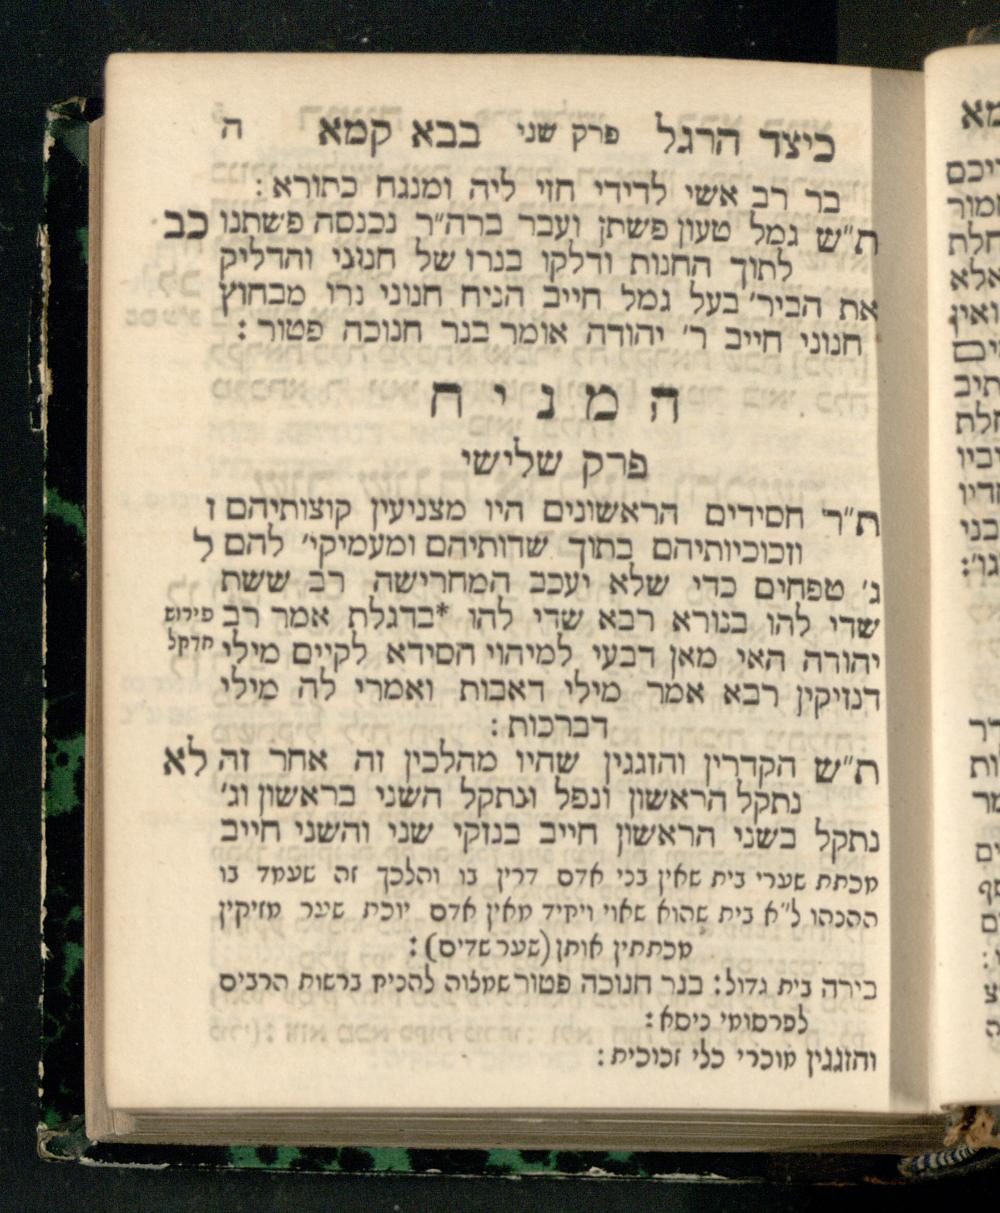 כיצד הרגל פרק שני בבא קמא ה
בר רב אשי לדידי חזי ליה ומנגח כתורא:
ת״ש גמל טעון פשתן ועבר ברה״ר נכנסה פשתנו כב
לתוך החנות ודלקו בנרו של חנוני והדליק
את הביר׳ בעל גמל חייב הניח חנוני נרו מבחוץ
חנוני חייב ר׳ יהודה אומר בנר חנוכה פטור:
המניח
פרק שלישי
ת״ר חסידים הראשונים היו מצניעין קוצותיהם ו
וזכוכיותיהם בתוך שדותיהם ומעמיקי׳ להם ל
ג׳ טפחים כדי שלא יעכב המחרישה רב ששת
שדי להו בנורא רבא שדי להו *בדגלת אמר רב פירוש
יהודה האי מאן דבעי למיהוי חסידא לקיים מילי חדקל
דנזיקין רבא אמר מילי דאבות ואמרי לה מילי
דברכות:
ת״ש הקדרין והזגגין שהיו מהלכין זה אחר זה לא
נתקל הראשון ונפל ונתקל השני בראשון וג׳
נתקל בשני הראשון חייב בנזקי שני והשני חייב
מכתת שערי בית שאין בני אדם דרין בו והלכך זה שעמד בו
ההכהו ל״א בית שהוא שאוי ויחיד מאין אדם יוכת שער מזיקין
מכתתין אותן (שער שדים):
בירה בית גדול: בנר חנוכה פטור שמצוה להניח ברשות הרבים
לפרסומי ניסא:
והזגגין מוכרי כלי זכוכית:
מא
יכם
חמור
חלת
אלא
ואין
תיב
חלת